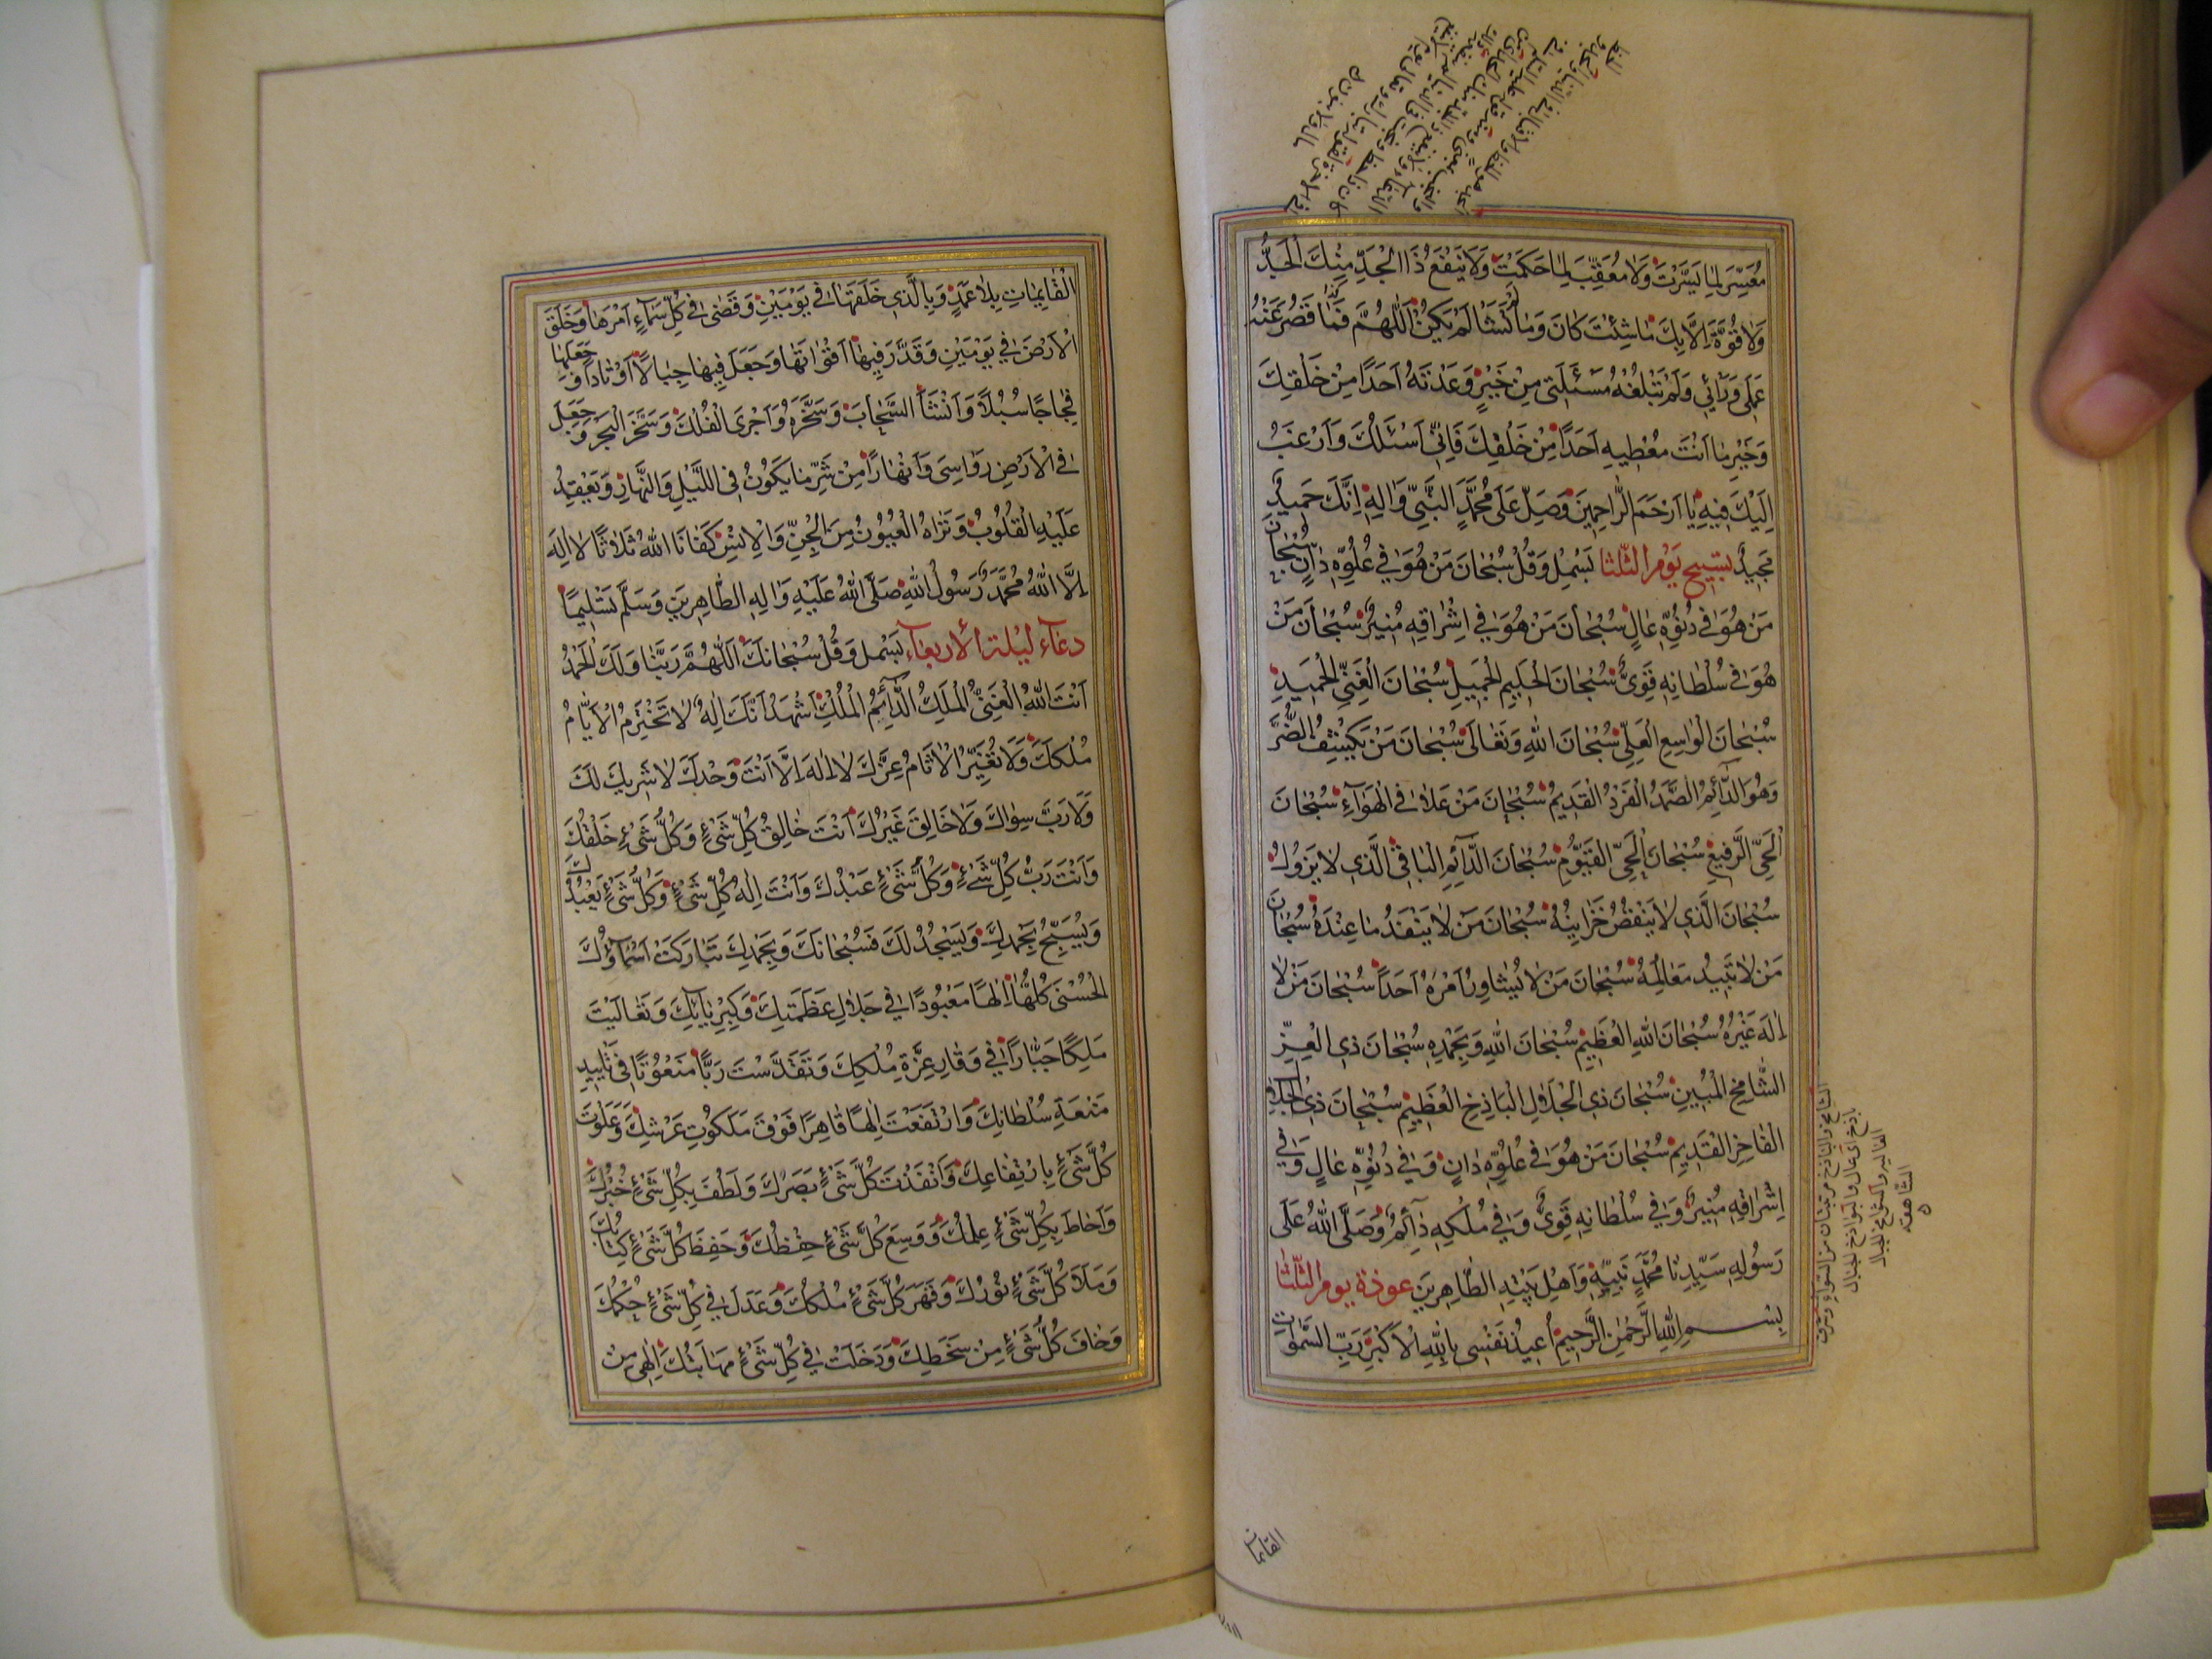 مُعَسِّرَ لِمَا يَسَّرْتَ وَلَا مُعَقِّبَ لِمَا حَكَمْتَ وَلَا يَنْفَعُ ذَا الْجَدِّ مِنْكَ الْجَدُّ
وَلَا قُوَّةَ اِلَّا بِكَ مَا شِئْتَ كَانَ وَمَا لَمْ تَشَأْ لَمْ يَكُنْ اَللّٰهُمَّ فَمَا قَصُرَ عَنْهُ
عَمَلِي وَرَأْيِي وَلَمْ تَبْلُغْهُ مَسْئَلَتِي مِنْ خَيْرٍ وَعَدْتَهُ اَحَدًا مِنْ خَلْقِكَ
وَخَيْرٍ مَا اَنْتَ مُعْطِيهِ اَحَدًا مِنْ خَلْقِكَ فَاِنِّي اَسْئَلُكَ وَاَرْغَبُ
اِلَيْكَ فِيهِ يَا اَرْحَمَ الرَّاحِمِينَ وَصَلِّ عَلَى مُحَمَّدٍ النَّبِيِّ وَاٰلِهِ اِنَّكَ حَمِيدٌ
مَجِيدٌ تسبيح يوم الثلثا بَسْمِلْ وَقُلْ سُبْحَانَ مَنْ هُوَ فِي عُلُوِّهِ دَانٍ سُبْحَانَ
مَنْ هُوَ فِي دُنُوِّهِ عَالٍ سُبْحَانَ مَنْ هُوَ فِي اِشْرَاقِهِ مُنِيرٌ سُبْحَانَ مَنْ
هُوَ فِي سُلْطَانِهِ قَوِيٌّ سُبْحَانَ الْحَلِيمِ الْجَمِيلِ سُبْحَانَ الْغَنِيِّ الْحَمِيدِ
سُبْحَانَ الْوَاسِعِ الْعَلِيِّ سُبْحَانَ اللهِ وَتَعَالَى سُبْحَانَ مَنْ يَكْشِفُ الضُّرَّ
وَهُوَ الدَّائِمُ الصَّمَدُ الْفَرْدُ الْقَدِيمُ سُبْحَانَ مَنْ عَلَا فِي الْهَوَآءِ سُبْحَانَ
الْحَيِّ الرَّفِيعِ سُبْحَانَ الْحَيِّ الْقَيُّومِ سُبْحَانَ الدَّائِمِ الْبَاقِي الَّذِي لَا يَزُولُ
سُبْحَانَ الَّذِي لَا يَنْقُصُ خَزَايِنُهُ سُبْحَانَ مَنْ لَا يَنْفَدُ مَا عِنْدَهُ سُبْحَانَ
مَنْ لَا تَبِيدُ مَعَالِمُهُ سُبْحَانَ مَنْ لَا يُشَاوِرُ اَمْرَهُ اَحَدًا سُبْحَانَ مَنْ لَا
اِلٰهَ غَيْرُهُ سُبْحَانَ اللهِ الْعَظِيمِ سُبْحَانَ اللهِ وَبِحَمْدِهِ سُبْحَانَ ذِي الْعِزِّ
الشَّامِخِ الْمُبِينِ سُبْحَانَ ذِي الْجَلَالِ الْبَاذِخِ الْعَظِيمِ سُبْحَانَ ذِي الْجَلَالِ
الْفَاخِرِ الْقَدِيمِ سُبْحَانَ مَنْ هُوَ فِي عُلُوِّهِ دَانٍ وَفِي دُنُوِّهِ عَالٍ وَفِي
اِشْرَاقِهِ مُنِيرٌ وَفِي سُلْطَانِهِ قَوِيٌّ وَفِي مُلْكِهِ دَآئِمٌ وَصَلَّى اللهُ عَلَى
رَسُولِهِ سَيِّدِنَا مُحَمَّدٍ نَبِيِّهِ وَاَهْلِ بَيْتِهِ الطَّاهِرِينَ عوذة يوم الثلثا
بِسْمِ اللهِ الرَّحْمٰنِ الرَّحِيمِ اُعِيذُ نَفْسِي بِاللهِ الْاَكْبَرِ رَبِّ السَّمٰوَاتِ
القائمات
الْقَايِمَاتِ بِلَا عَمَدٍ وَبِالَّذِي خَلَقَهَا فِي يَوْمَيْنِ وَقَضٰى فِي كُلِّ سَمَآءٍ اَمْرَهَا وَخَلَقَ
الْاَرْضَ فِي يَوْمَيْنِ وَقَدَّرَ فِيهَا اَقْوَاتَهَا وَجَعَلَ فِيهَا جِبَالًا اَوْتَادًا وَجَعَلَهَا
فِجَاجًا سُبُلًا وَاَنْشَاَ السَّحَابَ وَسَخَّرَهُ وَاَجْرَى الْفُلْكَ وَسَخَّرَ الْبَحْرَ وَجَعَلَ
فِي الْاَرْضِ رَوَاسِيَ وَاَنْهَارًا مِنْ شَرِّ مَا يَكُونُ فِي اللَّيْلِ وَالنَّهَارِ وَتَعْقِدُ
عَلَيْهِ الْقُلُوبُ وَتَرَاهُ الْعُيُونُ مِنَ الْجِنِّ وَالْاِنْسِ كَفَانَا اللهُ ثَلَاثًا لَا اِلٰهَ
اِلَّا اللهُ مُحَمَّدٌ رَسُولُ اللهِ صَلَّى اللهُ عَلَيْهِ وَاٰلِهِ الطَّاهِرِينَ وَسَلَّمَ تَسْلِيمًا
دعآء ليلة الأربعآء بَسْمِل وَقُلْ سُبْحَانَكَ اَللّٰهُمَّ رَبَّنَا وَلَكَ الْحَمْدُ
اَنْتَ اللهُ الْغَنِيُّ الْمَلِكُ الدَّآئِمُ الْمُلْكِ اَشْهَدُ اَنَّكَ اِلٰهٌ لَا تَخْتَرِمُ الْاَيَّامُ
مُلْكَكَ وَلَا تُغَيِّرُ الْاَيَّامُ عِزَّكَ لَا اِلٰهَ اِلَّا اَنْتَ وَحْدَكَ لَا شَرِيكَ لَكَ
وَلَا رَبَّ سِوَاكَ وَلَا خَالِقَ غَيْرُكَ اَنْتَ خَالِقُ كُلِّ شَيْءٍ وَكُلُّ شَيْءٍ خَلْقُكَ
وَاَنْتَ رَبُّ كُلِّ شَيْءٍ وَكُلُّ شَيْءٍ عَبْدُكَ وَاَنْتَ اِلٰهُ كُلِّ شَيْءٍ وَكُلُّ شَيْءٍ يَعْبُدُكَ
وَيُسَبِّحُ بِحَمْدِكَ وَيَسْجُدُ لَكَ فَسُبْحَانَكَ وَبِحَمْدِكَ تَبَارَكَتْ اَسْمَآؤُكَ
الْحُسْنَى كُلُّهَا اِلٰهًا مَعْبُودًا فِي جَلَالِ عَظَمَتِكَ وَكِبْرِيَآئِكَ وَتَعَالَيْتَ
مَلِكًا جَبَّارًا فِي وَقَارِ عِزَّةِ مُلْكِكَ وَتَقَدَّسْتَ رَبًّا مَنْعُوتًا فِي تَأْيِيدِ
مَنَعَةِ سُلْطَانِكَ وَارْتَفَعْتَ اِلٰهًا قَاهِرًا فَوْقَ مَلَكُوتِ عَرْشِكَ وَعَلَوْتَ
كُلَّ شَيْءٍ بِارْتِفَاعِكَ وَاَنْفَذْتَ كُلَّ شَيْءٍ بَصَرَكَ وَلَطُفَ بِكُلِّ شَيْءٍ خُبْرُكَ
وَاَحَاطَ بِكُلِّ شَيْءٍ عِلْمُكَ وَوَسِعَ كُلَّ شَيْءٍ حِفْظُكَ وَحَفِظَ كُلَّ شَيْءٍ كِتَابُكَ
وَمَلَاَ كُلَّ شَيْءٍ نُورُكَ وَقَهَرَ كُلَّ شَيْءٍ مُلْكُكَ وَعَدَلَ فِي كُلِّ شَيْءٍ حُكْمُكَ
وَخَافَ كُلُّ شَيْءٍ مِنْ سَخَطِكَ وَدَخَلَتْ فِي كُلِّ شَيْءٍ مَهَابَتُكَ اِلٰهِي مِنْ